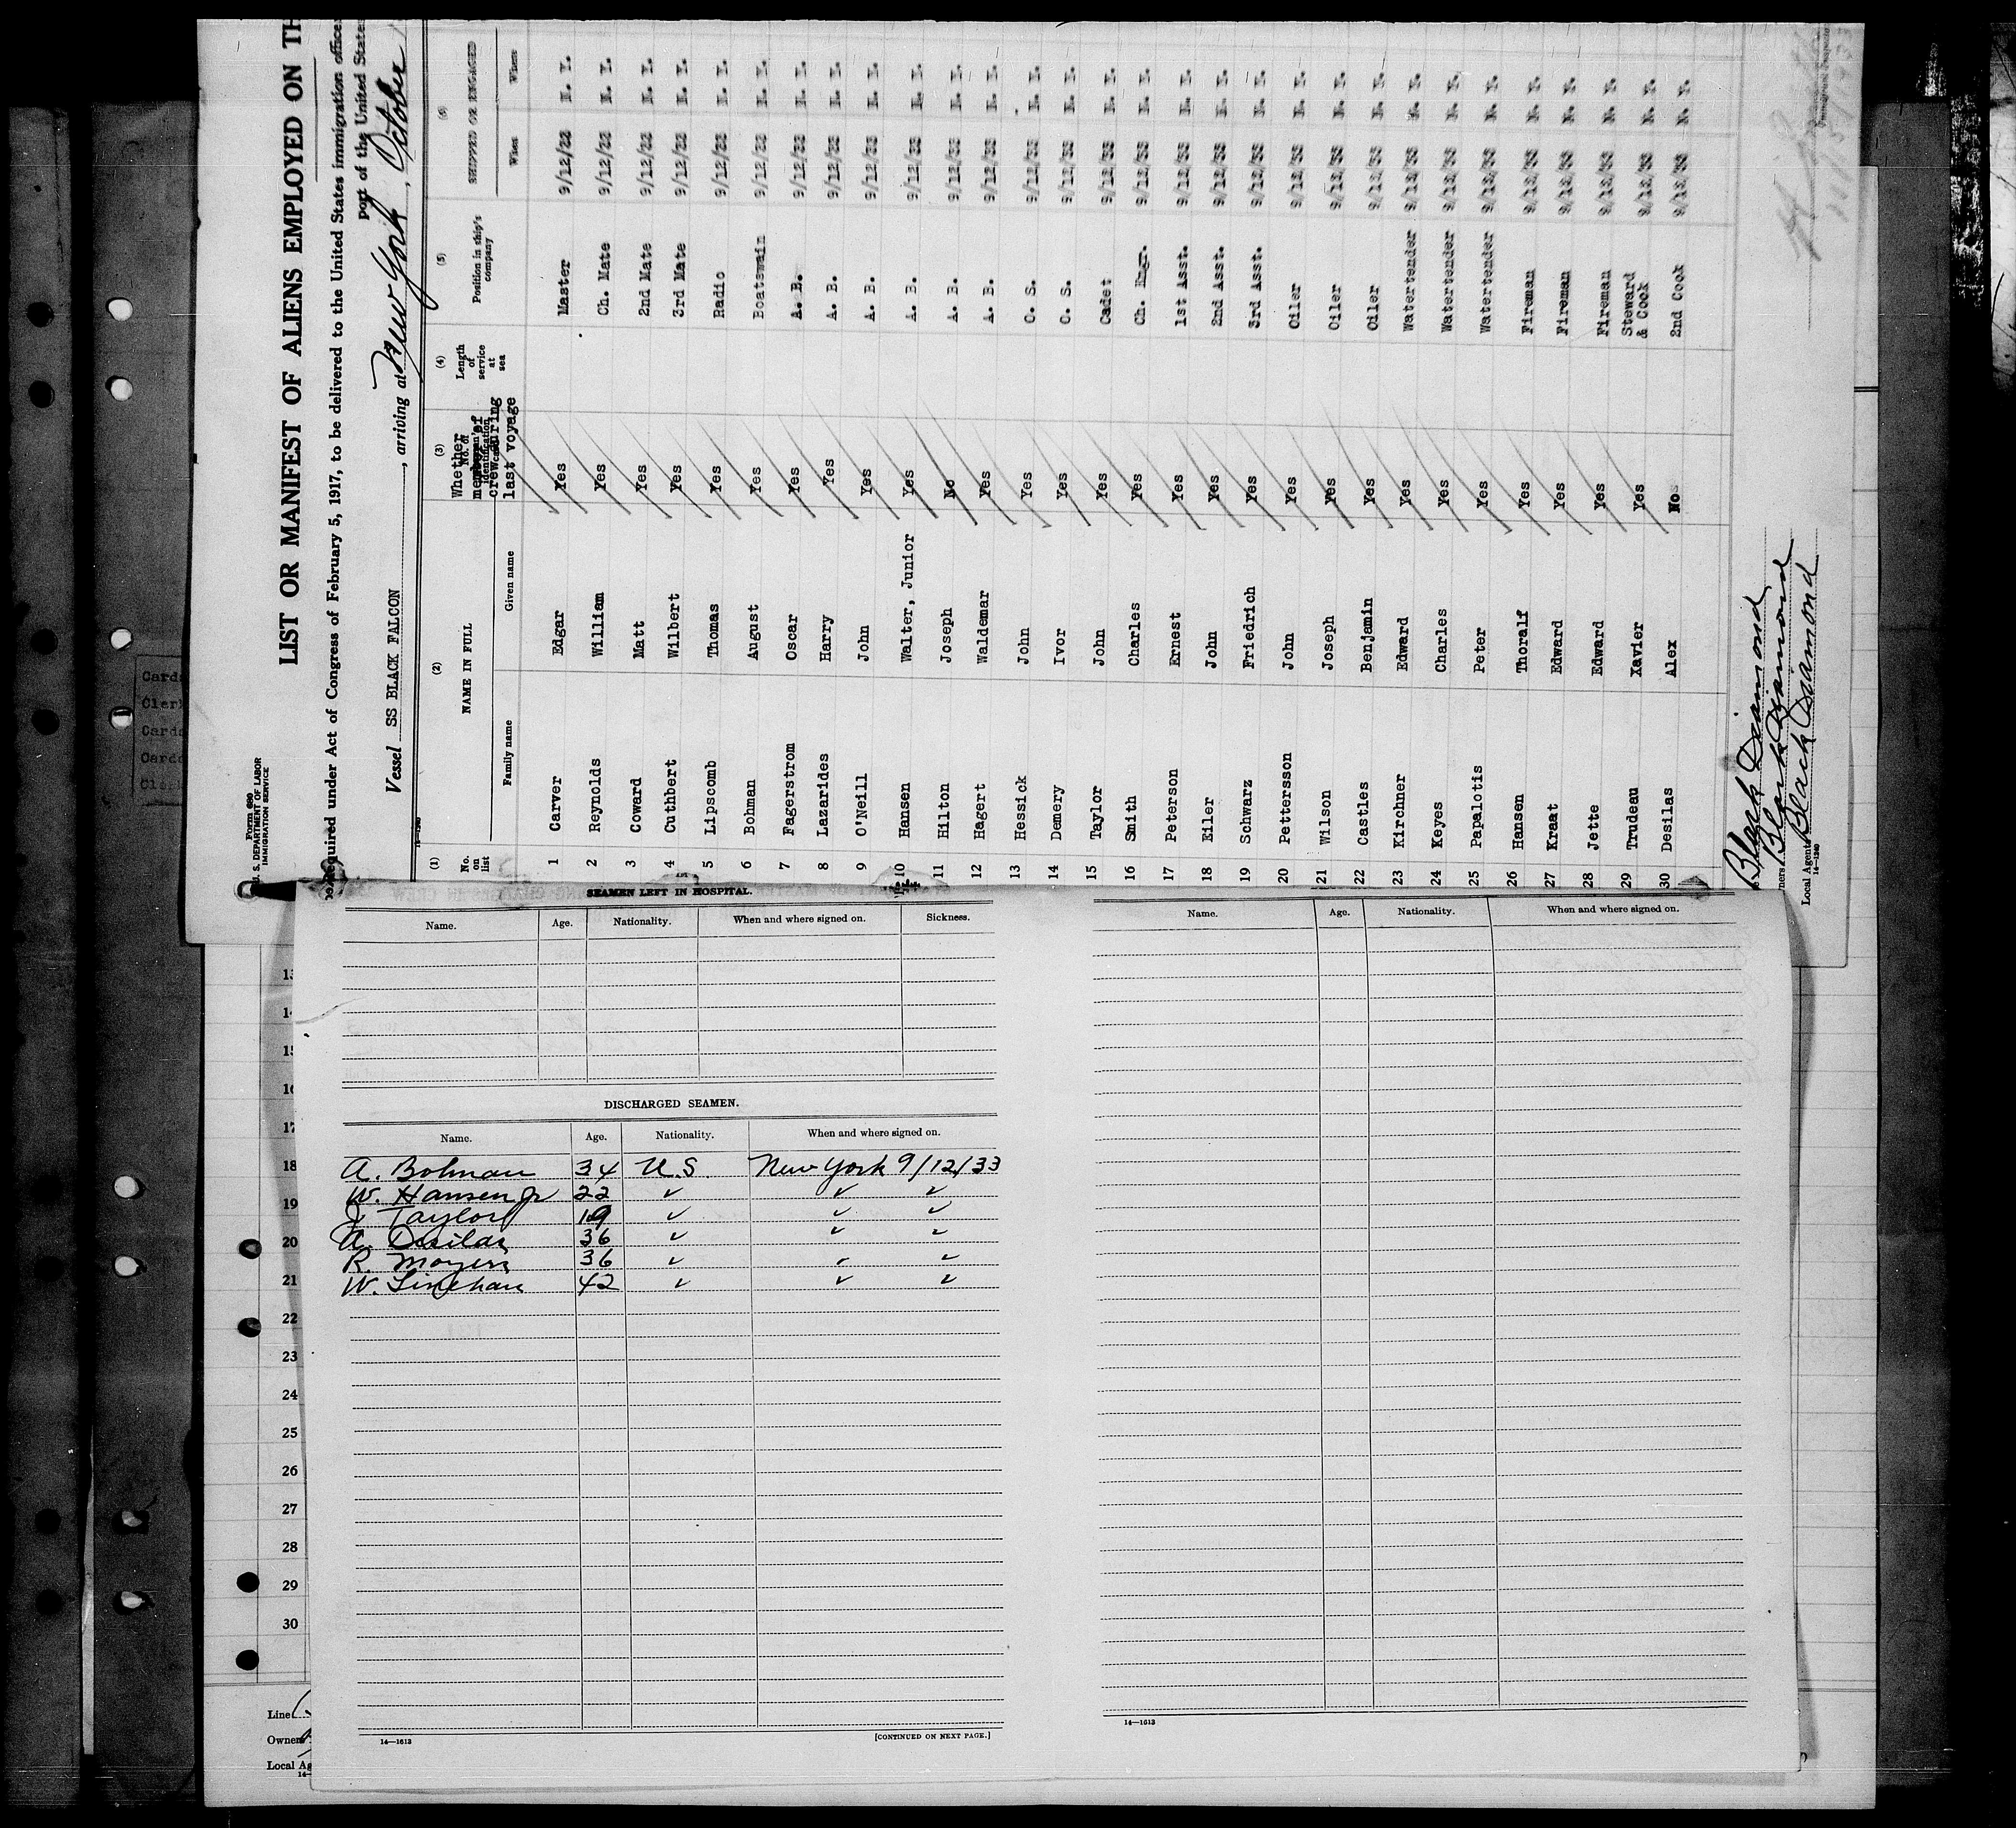 Form 680
U. S. DEPARTMENT OF LABOR
IMMIGRATION SERVICE
LIST OR MANIFEST OF ALIENS EMPLOYED ON TH
Required under Act of Congress of February 5, 1917, to be delivered to the United States immigration office
port of the United States
Vessel SS BLACK FALCON, arriving at New York, October
(1) (2) (3) (4) (5) (6)
No. on list NAME IN FULL Whether member of crew during last voyage Length of service at sea Position in ship's company SHIPPED OR ENGAGED
Family name Given name When Where
1 Carver Edgar Yes Master 9/12/33 N. Y.
2 Reynolds William Yes Ch. Mate 9/12/33 N. Y.
3 Coward Matt Yes 2nd Mate 9/12/33 N. Y.
4 Cuthbert Wilbert Yes 3rd Mate 9/12/33 N. Y.
5 Lipscomb Thomas Yes Radio 9/12/33 N. Y.
6 Bohman August Yes Boatswain 9/12/33 N. Y.
7 Fagerstrom Oscar Yes A. B. 9/12/33 N. Y.
8 Lazarides Harry Yes A. B. 9/12/33 N. Y.
9 O'Neill John Yes A. B. 9/12/33 N. Y.
10 Hansen Walter, Junior Yes A. B. 9/12/33 N. Y.
11 Hilton Joseph No A. B. 9/12/33 N. Y.
12 Hagert Waldemar Yes A. B. 9/12/33 N. Y.
13 Hessick John Yes O. S. 9/12/33 N. Y.
14 Demery Ivor Yes O. S. 9/12/33 N. Y.
15 Taylor John Yes Cadet 9/12/33 N. Y.
16 Smith Charles Yes Ch. Engr. 9/12/33 N. Y.
17 Peterson Ernest Yes 1st Asst. 9/12/33 N. Y.
18 Eiler John Yes 2nd Asst. 9/12/33 N. Y.
19 Schwarz Friedrich Yes 3rd Asst. 9/12/33 N. Y.
20 Pettersson John Yes Oiler 9/12/33 N. Y.
21 Wilson Joseph Yes Oiler 9/12/33 N. Y.
22 Castles Benjamin Yes Oiler 9/12/33 N. Y.
23 Kirchner Edward Yes Watertender 9/12/33 N. Y.
24 Keyes Charles Yes Watertender 9/12/33 N. Y.
25 Papalotis Peter Yes Watertender 9/12/33 N. Y.
26 Hansen Thoralf Yes Fireman 9/12/33 N. Y.
27 Kraat Edward Yes Fireman 9/12/33 N. Y.
28 Jette Edward Yes Fireman 9/12/33 N. Y.
29 Trudeau Xavier Yes Steward & Cook 9/12/33 N. Y.
30 Desilas Alex No 2nd Cook 9/12/33 N. Y.
Black Diamond
Black Diamond
Local Agents Black Diamond
14—1240
SEAMEN LEFT IN HOSPITAL.
Name. Age. Nationality. When and where signed on. Sickness.
DISCHARGED SEAMEN.
Name. Age. Nationality. When and where signed on.
A. Bohman 34 U.S. New York 9/12/33
W. Hansen Jr 22 ✓ ✓ ✓
J Taylor 19 ✓ ✓ ✓
A. Desilas 36 ✓ ✓ ✓
R. Moyers 36 ✓ ✓ ✓
W. Linehan 42 ✓ ✓ ✓
14—1613
[CONTINUED ON NEXT PAGE.]
Name. Age. Nationality. When and where signed on.
14—1613
13
14
15
16
17
18
19
20
21
22
23
24
25
26
27
28
29
30
Line
Owners
Local Ag
Cards
Clerk
Cards
Cards
Clerk